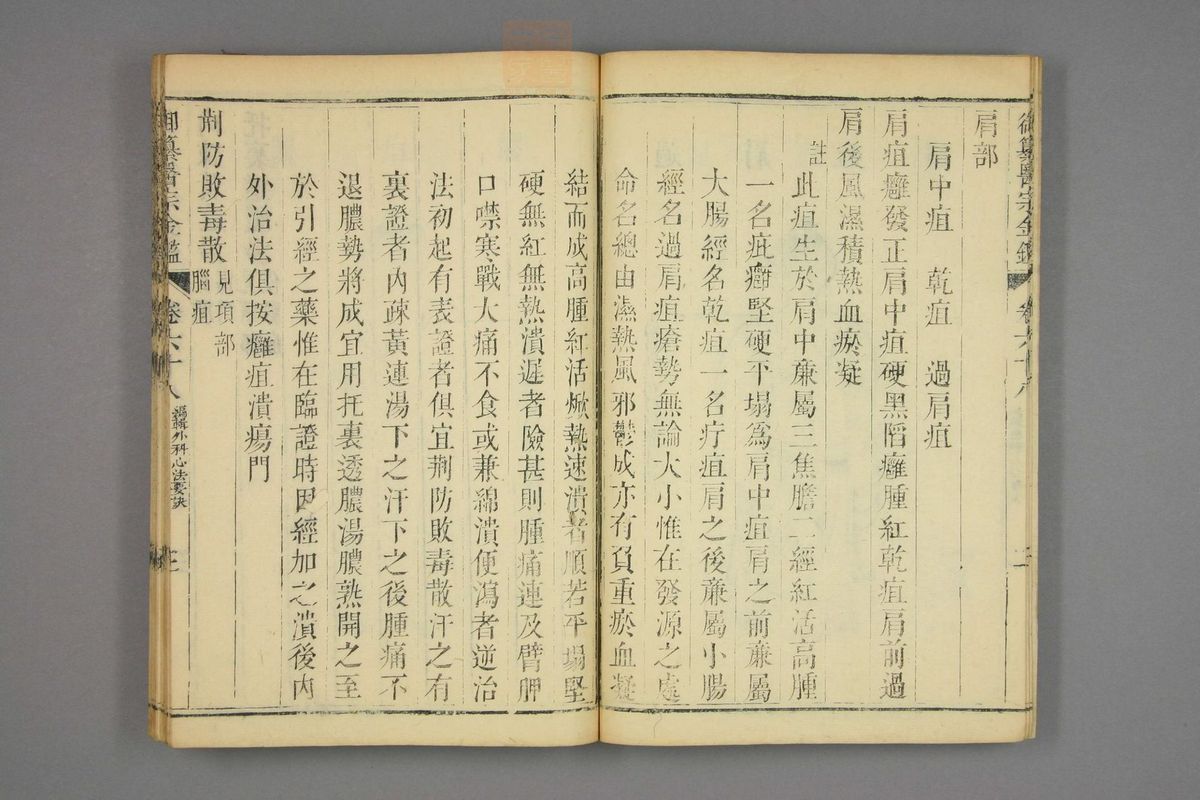 肩部
肩中疽　乾疽　過肩疽
肩疽癰發正肩中疽硬黑陷癰腫紅乾疽肩前過
肩後風濕積熱血瘀凝
註此疽生於肩中廉屬三焦膽二經紅活高腫
一名疪癰堅硬平塌爲肩中疽肩之前廉屬
大腸經名乾疽一名疔疽肩之後廉屬小腸
經名過肩疽瘡勢無論大小惟在發源之處
命名總由濕熱風邪鬱成亦有負重瘀血凝
結而成高腫紅活焮熱速潰者順若平塌堅
硬無紅無熱潰遲者險甚則腫痛連及臂胛
口噤寒戰大痛不食或兼綿潰便瀉者逆治
法初起有表證者俱宜荆防敗毒散汗之有
裏證者內疎黃連湯下之汗下之後腫痛不
退膿勢將成宜用托裏透膿湯膿熟開之至
於引經之藥惟在臨證時因經加之潰後內
外治法俱按癰疽潰瘍門
荆防敗毒散 見項部
腦疽
御纂醫宗金鑑 卷六十八 編輯外科心法要訣